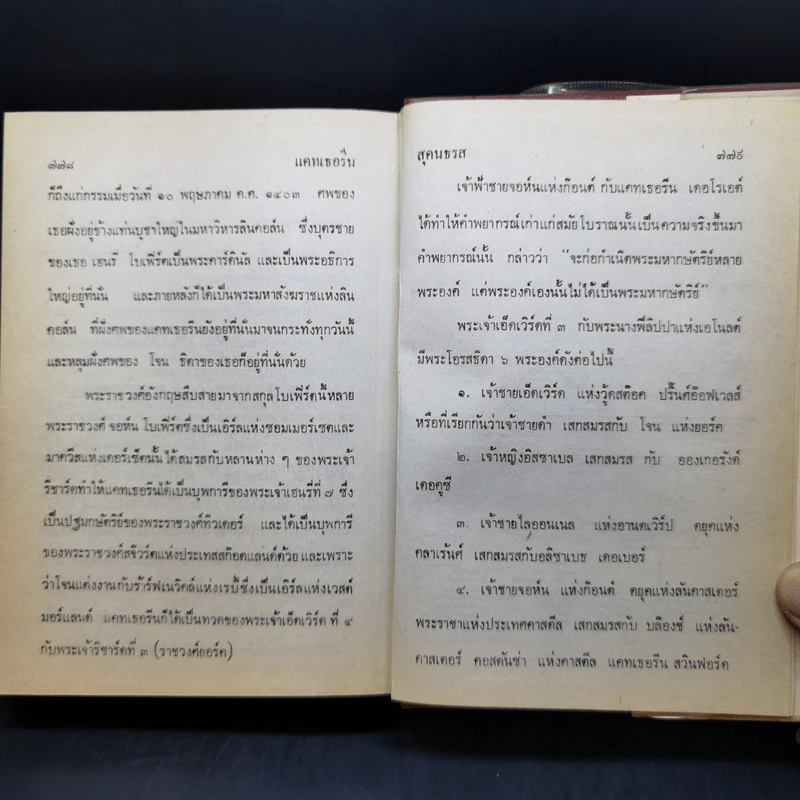 ๗๗๘ แคทเธอรีน
ก็ถึงแก่กรรมเมื่อวันที่ ๑๐ พฤษภาคม ค.ศ. ๑๔๐๓ ศพของ
เธอฝังอยู่ข้างแท่นบูชาใหญ่ในมหาวิหารลินคอล์น ซึ่งบุตรชาย
ของเธอ เฮนรี โบเฟิร์ตเป็นพระคาร์ดินัล และเป็นพระอธิการ
ใหญ่อยู่ที่นั่น และภายหลังก็ได้เป็นพระมหาสังฆราชแห่งลิน
คอล์น ที่ฝังศพของแคทเธอรีนยังอยู่ที่นั่นมาจนกระทั่งทุกวันนี้
และหลุมฝังศพของ โจน ธิดาของเธอก็อยู่ที่นั่นด้วย
พระราชวงศ์อังกฤษสืบสายมาจากสกุลโบเฟิร์ตนี้หลาย
พระราชวงศ์ จอห์น โบเฟิร์ตซึ่งเป็นเอิร์ลแห่งซอมเมอร์เซตและ
มาควิสแห่งเดอร์เซ็ตนั้นได้สมรสกับหลานห่าง ๆ ของพระเจ้า
ริชาร์ดทำให้แคทเธอรีนได้เป็นบุพการีของพระเจ้าเฮนรี่ที่ ๗ ซึ่ง
เป็นปฐมกษัตริย์ของพระราชวงศ์ทิวเดอร์ และได้เป็นบุพการี
ของพระราชวงศ์สจ๊วร์ตแห่งประเทศสก๊อตแลนด์ด้วย และเพราะ
ว่าโจนแต่งงานกับร๊าร์ฟเนวิคล์แห่งเรบี้ซึ่งเป็นเอิร์ลแห่งเวสต์
มอร์แลนด์ แคทเธอรีนก็ได้เป็นทวดของพระเจ้าเอ็ดเวิร์ด ที่ ๔
กับพระเจ้าริชาร์ดที่ ๓ (ราชวงศ์ยอร์ค)
สุคนธรส ๗๗๙
เจ้าฟ้าชายจอห์นแห่งก๊อนต์ กับแคทเธอรีน เดอโรเอต์
ได้ทำให้คำพยากรณ์เก่าแก่สมัยโบราณนั้นเป็นความจริงขึ้นมา
คำพยากรณ์นั้น กล่าวว่า "จะก่อกำเนิดพระมหากษัตริย์หลาย
พระองค์ แต่พระองค์เองนั้นไม่ได้เป็นพระมหากษัตริย์"
พระเจ้าเอ็ดเวิร์ดที่ ๓ กับพระนางฟิลิปปาแห่งเฮโนลต์
มีพระโอรสธิดา ๖ พระองค์ดังต่อไปนี้
๑. เจ้าชายเอ็ดเวิร์ด แห่งวู้ดสต๊อค ปริ๊นค์อ๊อฟเวลส์
หรือที่เรียกกันว่าเจ้าชายดำ เสกสมรสกับ โจน แห่งยอร์ค
๒. เจ้าหญิงอิสซาเบล เสกสมรส กับ อองเกอรังด์
เดอคูซี
๓. เจ้าชายไลออนเนล แห่งอานตเวิร์ป ดยุคแห่ง
คลาเร้นค์ เสกสมรสกับอลิซาเบธ เดอเบอร์
๔. เจ้าชายจอห์น แห่งก๊อนต์ ดยุคแห่งลันคาสเตอร์
พระราชาแห่งประเทศคาสตีล เสกสมรสกับ บล๊องช์ แห่งลัน-
คาสเตอร์ คอสตันซ่า แห่งคาสตีล แคทเธอรีน สวินฟอร์ด